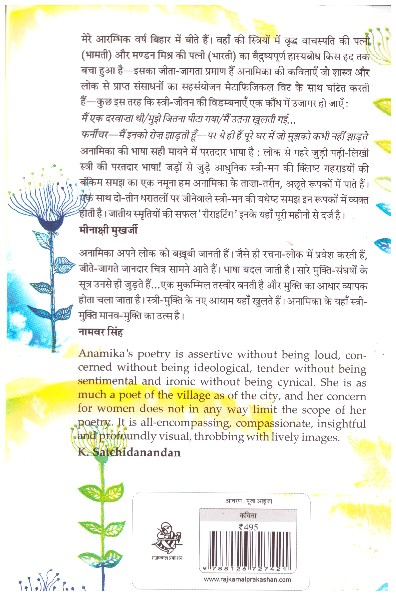 मेरे आरम्भिक वर्ष बिहार में बीते हैं। वहाँ की स्त्रियों में वृद्ध वाचस्पति की पत्नी
(भामती) और मण्डन मिश्र की पत्नी (भारती) का वैदुष्यपूर्ण हास्यबोध किस हद तक
बचा हुआ है—इसका जीता-जागता प्रमाण हैं अनामिका की कविताएँ जो शास्त्र और
लोक से प्राप्त संसाधनों का सहसंयोजन मेटाफिजिकल विट के साथ घटित करती
हैं—कुछ इस तरह कि स्त्री-जीवन की विडम्बनाएँ एक कौंध में उजागर हो जाएँ :
मैं एक दरवाज़ा थी/मुझे जितना पीटा गया/मैं उतना खुलती गई...
फर्नीचर—मैं इनको रोज़ झाड़ती हूँ— पर ये ही हैं पूरे घर में जो मुझको कभी नहीं झाड़ते
अनामिका की भाषा सही मायने में परतदार भाषा है : लोक से गहरे जुड़ी पढ़ी-लिखी
स्त्री की परतदार भाषा! जड़ों से जुड़े आधुनिक स्त्री-मन की क्लिष्ट गहराइयों की
बंकिम समझ का एक नमूना हम अनामिका के ताज़ा-तरीन, अछूते रूपकों में पाते हैं।
एक साथ दो-तीन धरातलों पर जीनेवाले स्त्री-मन की यथेष्ट समझ इन रूपकों में व्यक्त
होती है। जातीय स्मृतियों की सफल 'रीराइटिंग' इनके यहाँ पूरी महीनी से दर्ज है।
मीनाक्षी मुखर्जी
अनामिका अपने लोक को बखूबी जानती हैं। जैसे ही रचना-लोक में प्रवेश करती हैं,
जीते-जागते जानदार चित्र सामने आते हैं। भाषा बदल जाती है। सारे मुक्ति-संघर्षों के
सूत्र उनसे ही जुड़ते हैं...एक मुकम्मिल तस्वीर बनती है और मुक्ति का आधार व्यापक
होता चला जाता है। स्त्री-मुक्ति के नए आयाम यहाँ खुलते हैं। अनामिका के यहाँ स्त्री-
मुक्ति मानव-मुक्ति का उत्स है।
नामवर सिंह
Anamika's poetry is assertive without being loud, con-
cerned without being ideological, tender without being
sentimental and ironic without being cynical. She is as
much a poet of the village as of the city, and her concern
for women does not in any way limit the scope of her
poetry. It is all-encompassing, compassionate, insightful
and profoundly visual, throbbing with lively images.
K. Satchidanandan
आवरण : पूजा आहूजा
कविता
₹495
राजकमल प्रकाशन
9 788126 727421
www.rajkamalprakashan.com